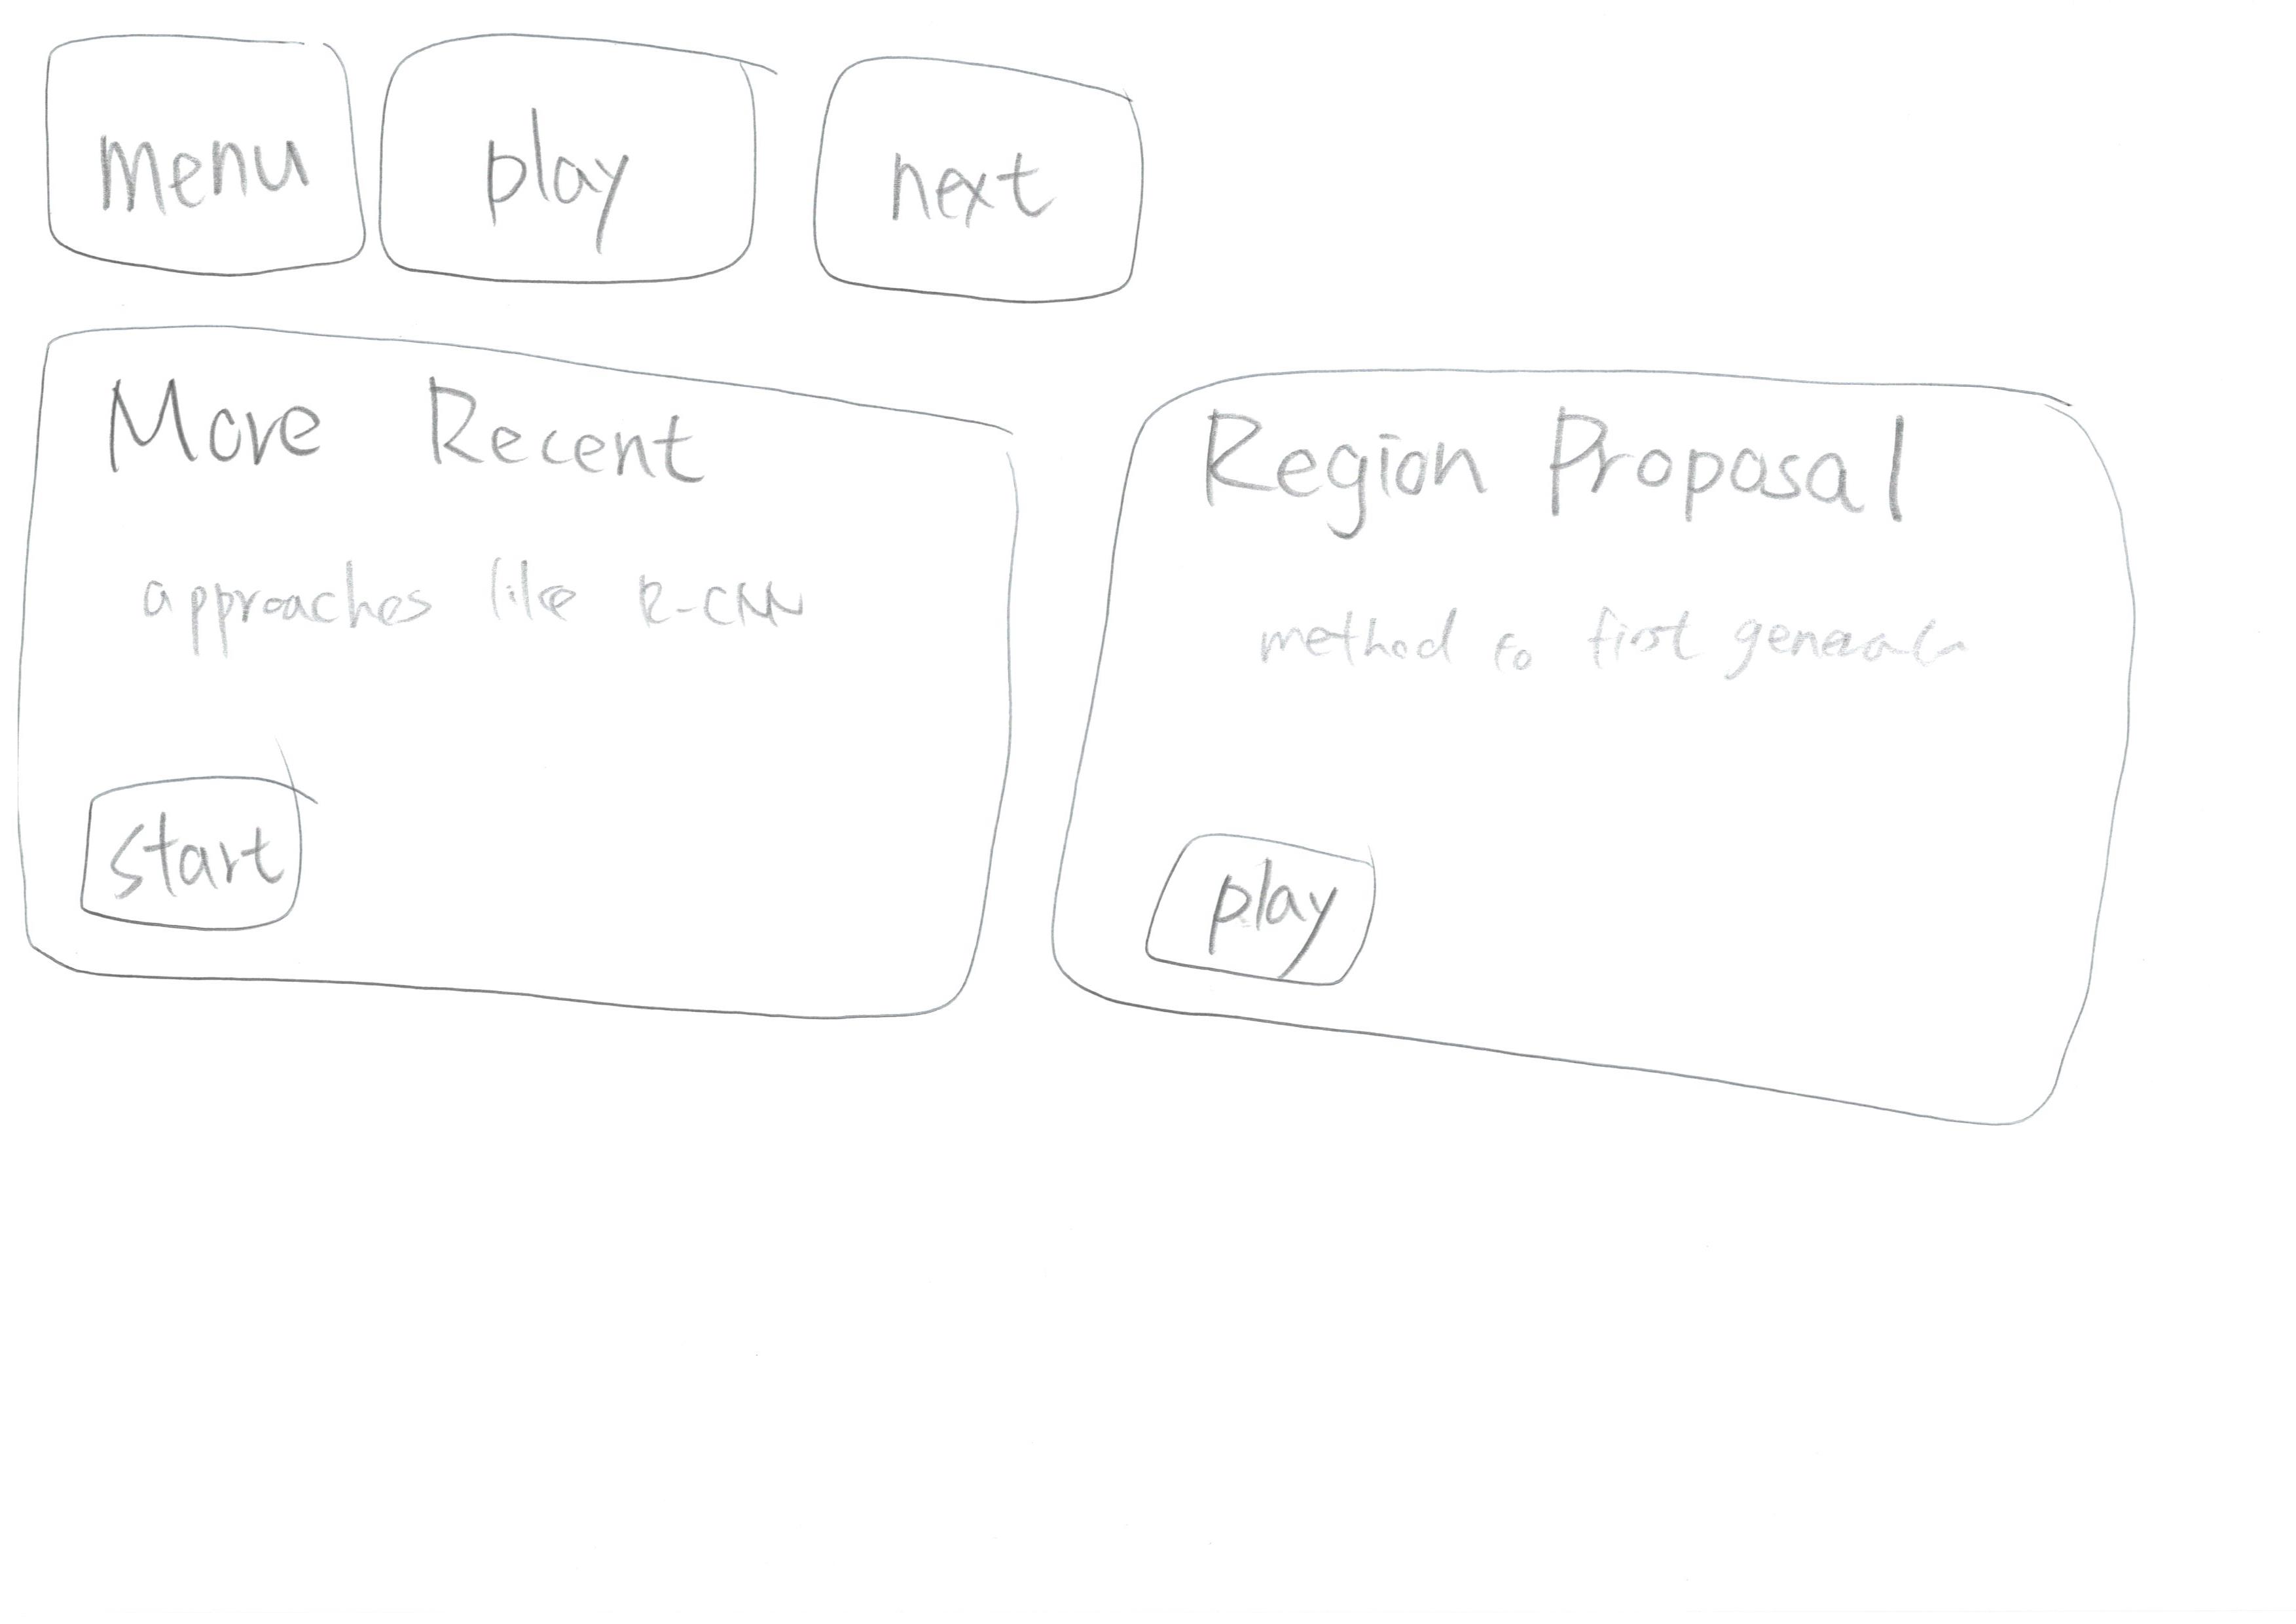 menu
play
next
More Recent
approaches like R-CNN
start
Region Proposal
method to first generate
play